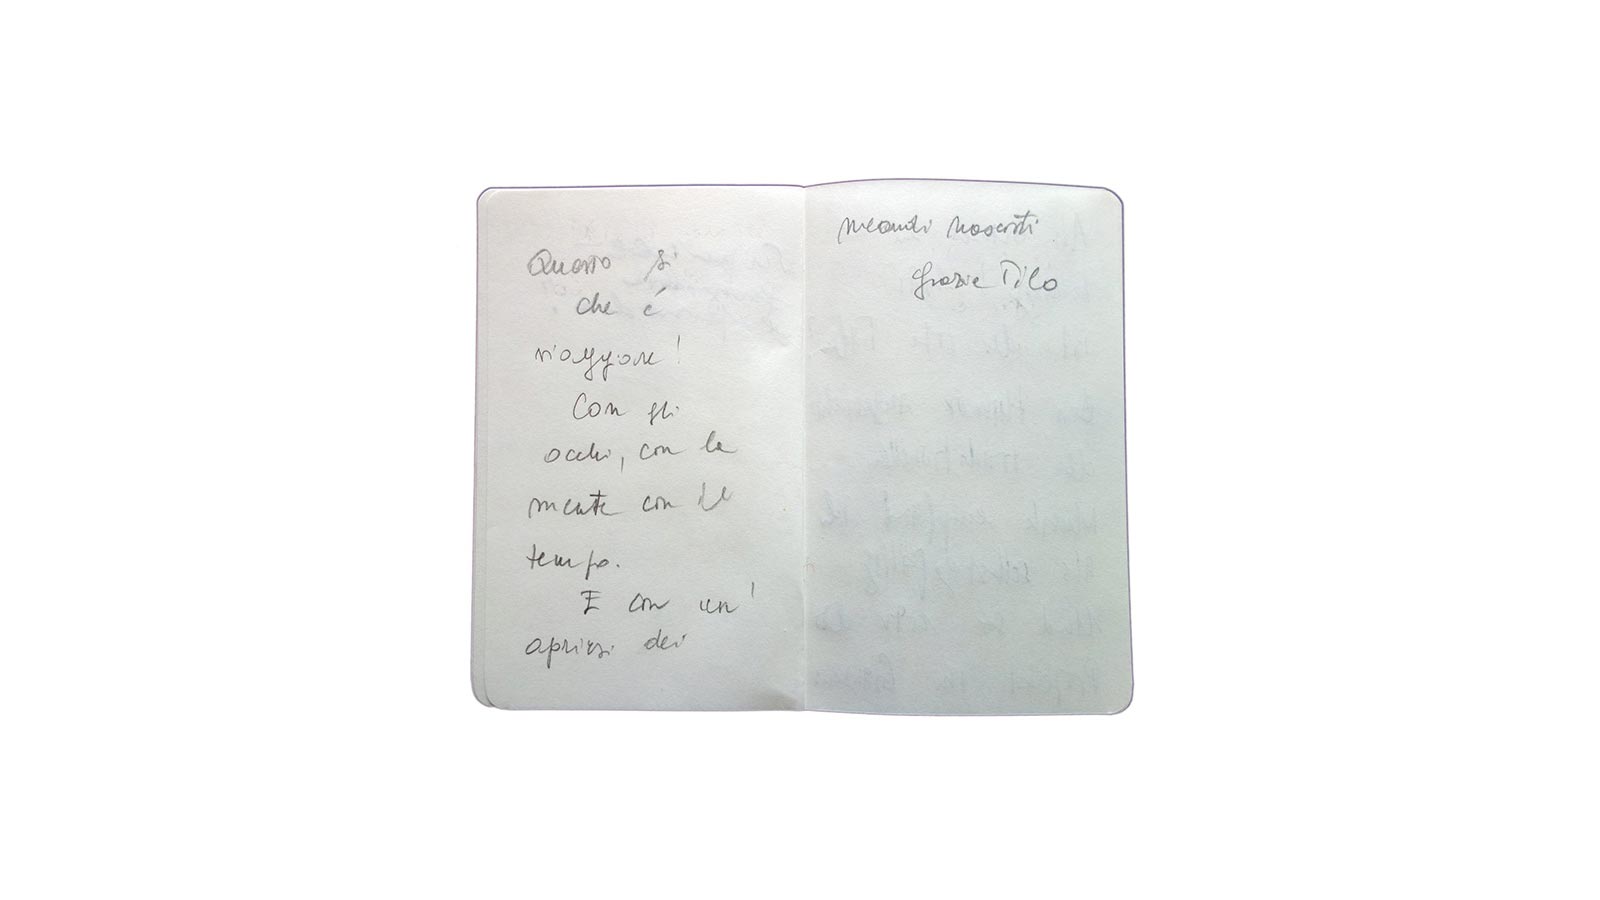 Questo si
che é
viaggiare!
Con gli
occhi, con la
mente con il
tempo.
E con un'
aprirsi dei
meandri nascosti
Grazie Tilo